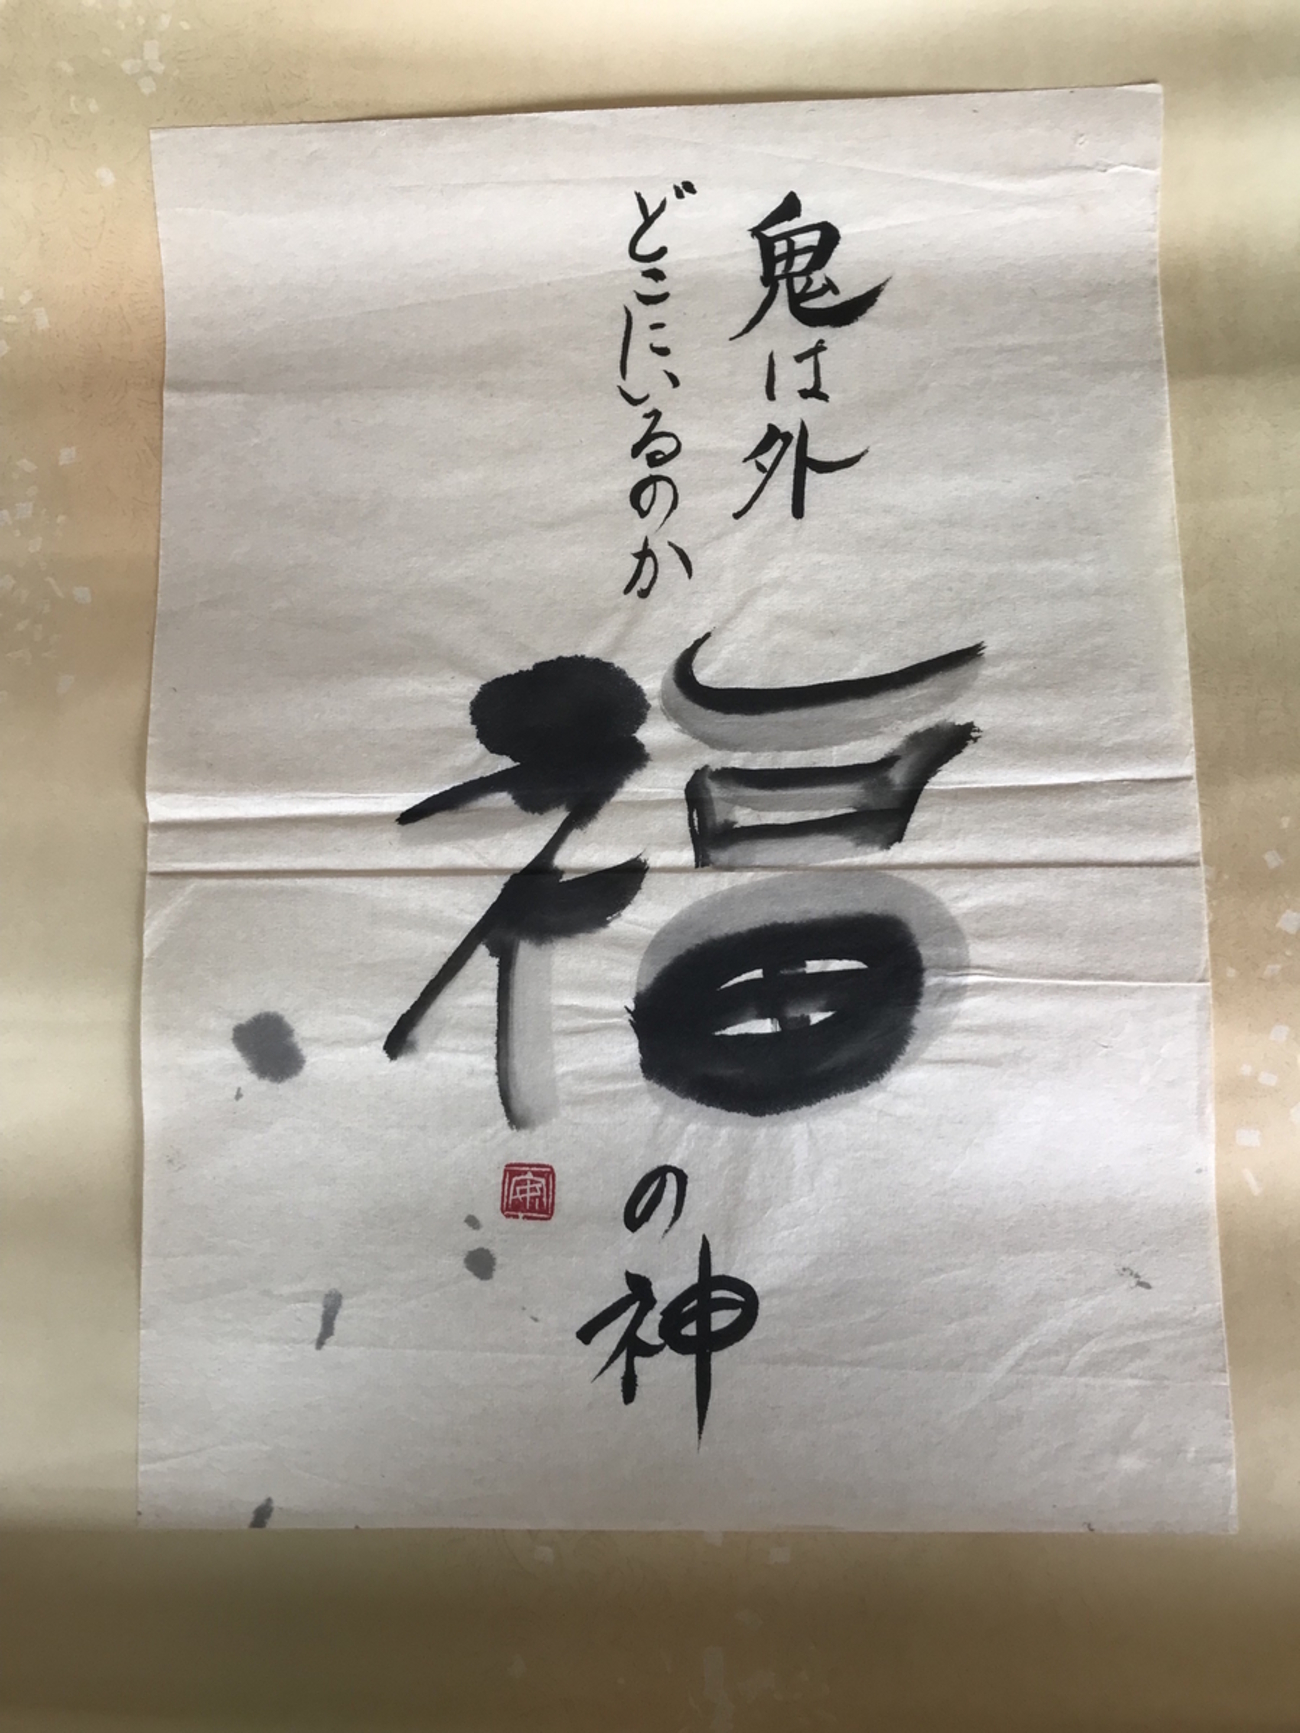 鬼は外
どこにいるのか
福の神